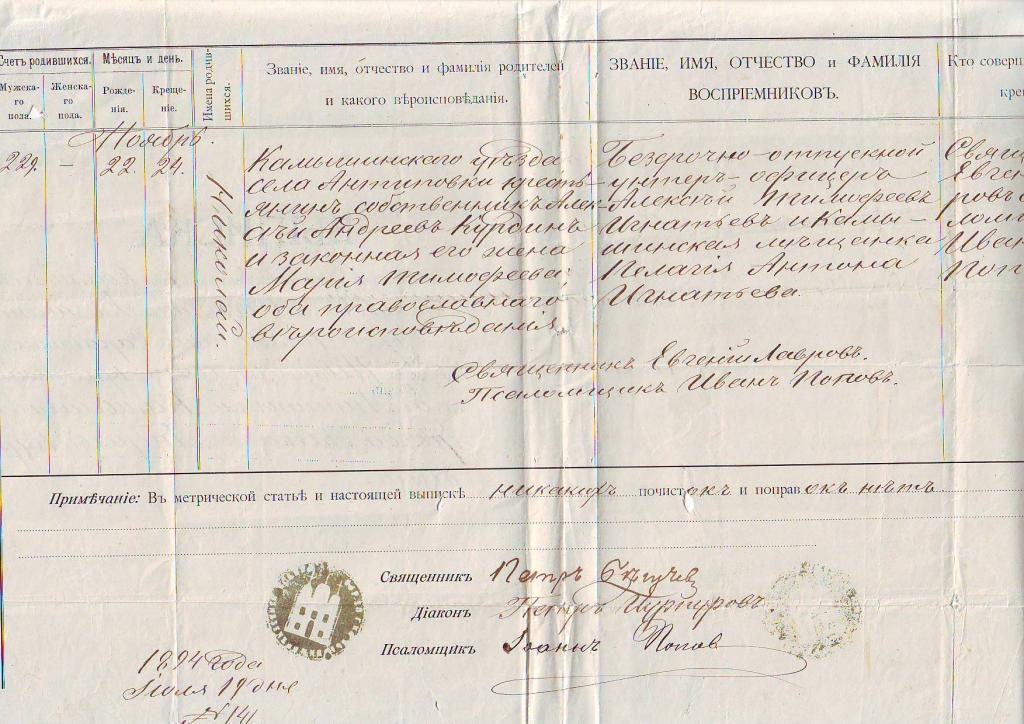 Счетъ родившихся.
Мужска-
го
пола.
Женска-
го
пола.
Мѣсяцъ и день.
Рожде-
нія.
Креще-
ніе.
Имена родив-
шихся.
Званіе, имя, отчество и фамилія родителей
и какого вѣроисповѣданія.
ЗВАНІЕ, ИМЯ, ОТЧЕСТВО и ФАМИЛІЯ
ВОСПРІЕМНИКОВЪ.
Кто соверш
крещ
Ноябрь.
229.
—
22.
24.
Николай.
Камышинскаго уѣзда
села Антиповки кресть-
янинъ собственникъ Алек-
сѣй Андреевъ Курдинъ
и законная его жена
Марія Тимофеева:
оба православнаго
вѣроисповѣданія
Безсрочно-отпускной
унтеръ-офицеръ
Алексѣй Тимофеевъ
Игнатьевъ и Камы-
шинская мѣщанка
Пелагія Антонова
Игнатьева.
Свящ
Евген
ровъ
лом
Иван
Поп
Священникъ Евгеній Лавровъ.
Псаломщикъ Иванъ Поповъ.
Примѣчаніе: Въ метрической статьѣ и настоящей выпискѣ никакихъ почистокъ и поправокъ нѣтъ
Священникъ Петръ
Діаконъ Петръ
Псаломщикъ Іоаннъ Попов
1894 года
Іюля 19 дня
№ 141